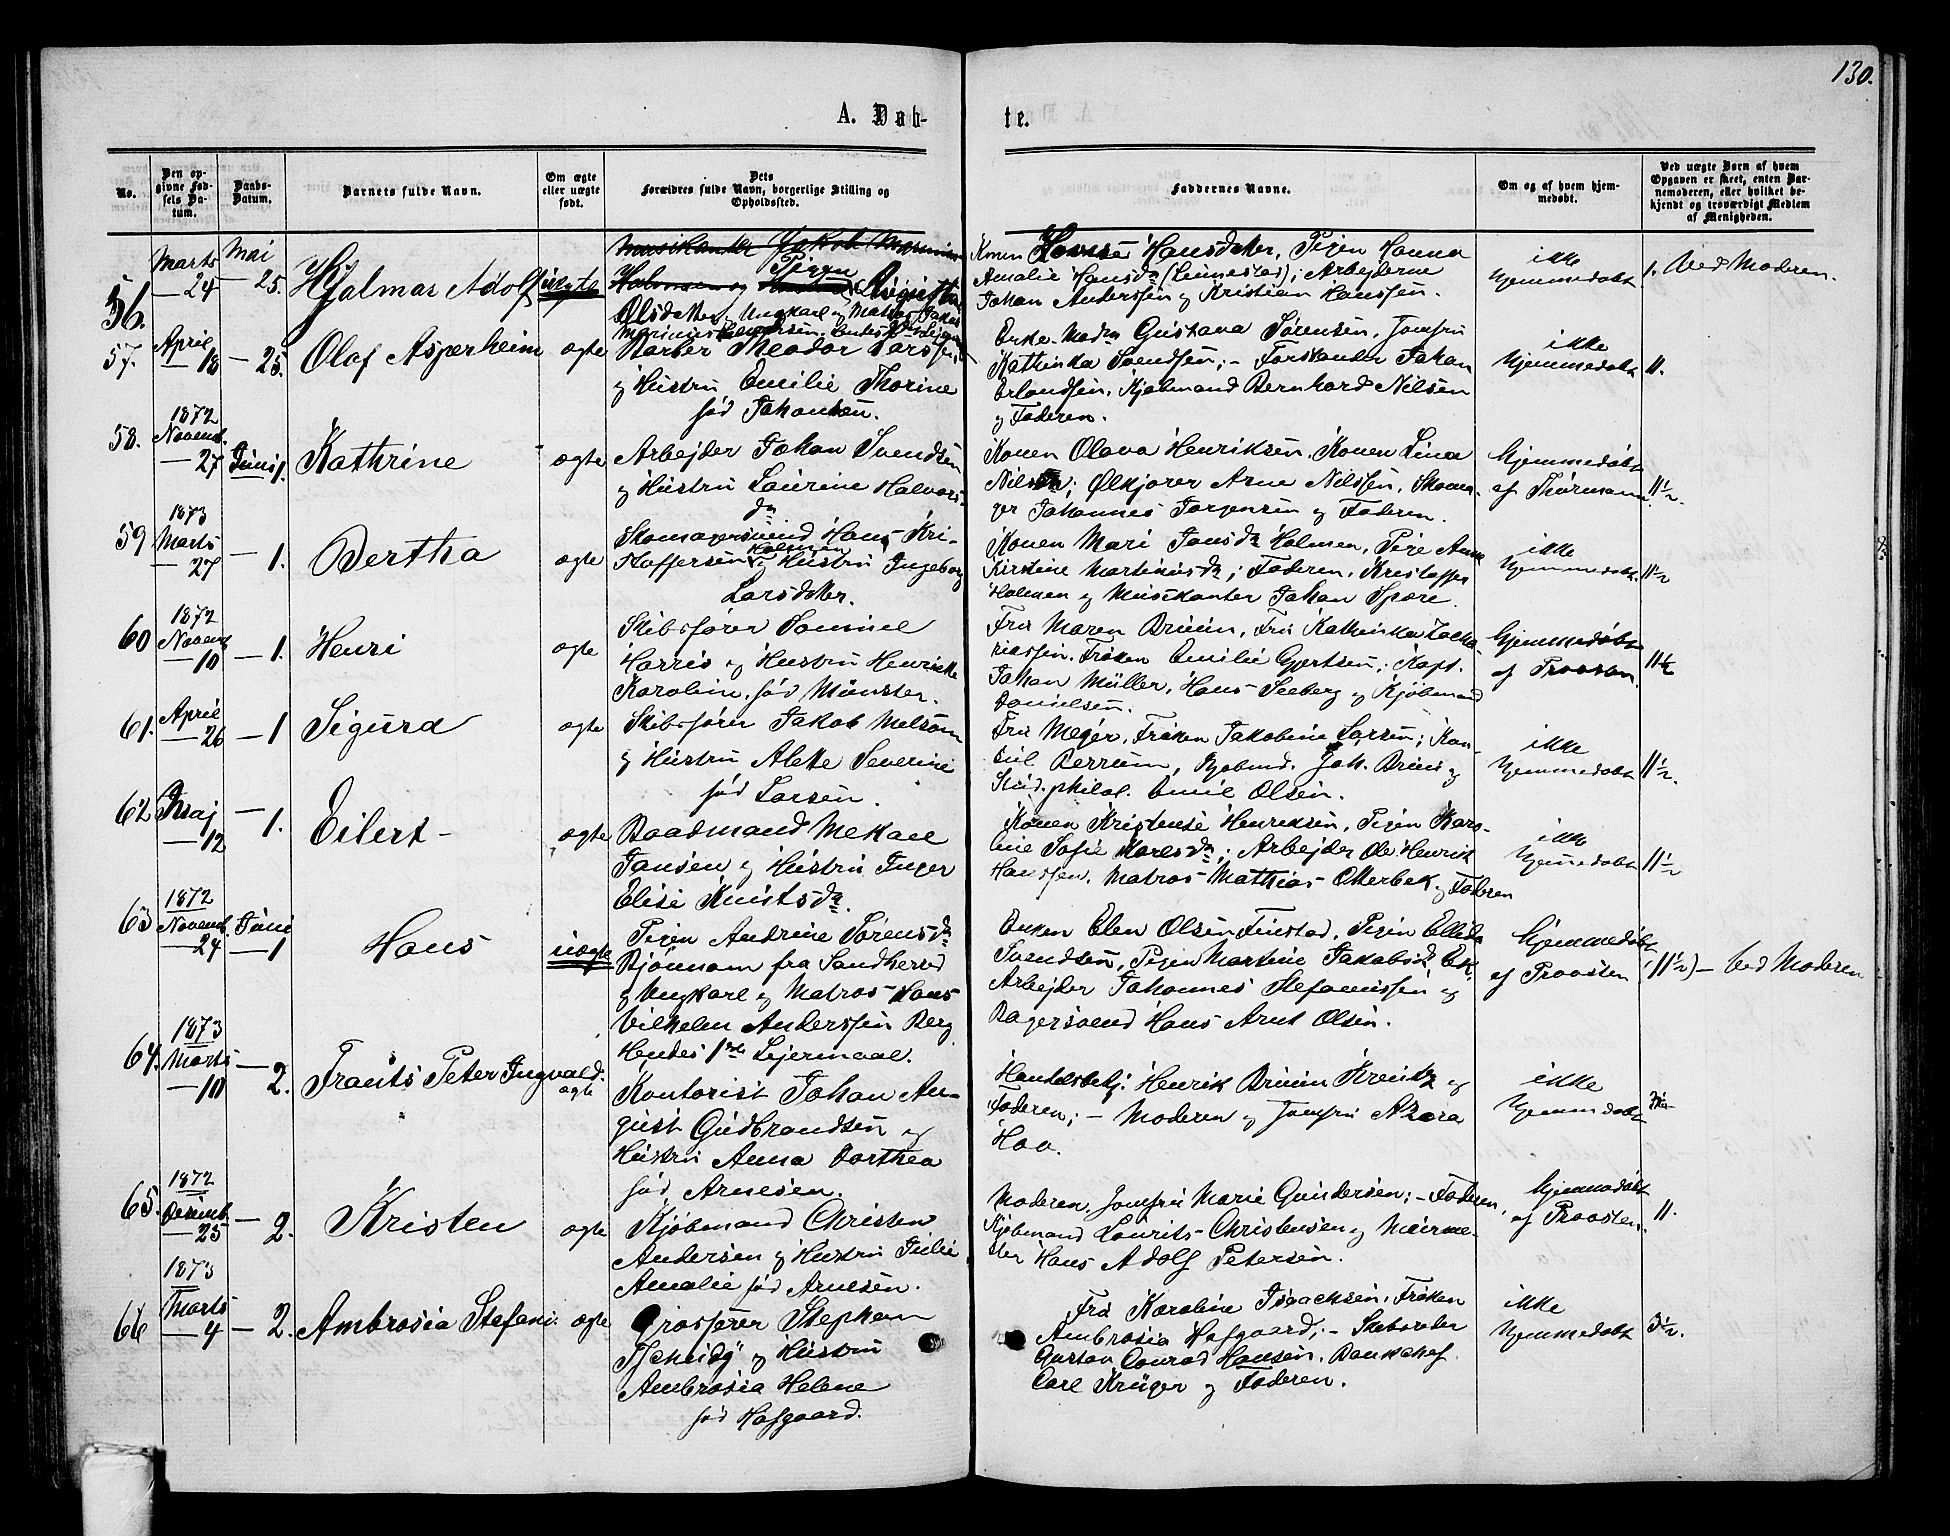 130.
A. Døb-
te.
No.
Den op-
givne Fød-
sels Da-
tum.
Daabs-
Datum.
Barnets fulde Navn.
Om ægte
eller uægte
født.
Dets
Forældres fulde Navn, borgerlige Stilling og
Opholdssted.
Faddernes Navne.
Om og af hvem hjem-
medøbt.
Ved uægte Børn af hvem
Opgaven er skeet, enten Bar-
nemoderen, eller hvilket be-
kjendt og troværdigt Medlem
af Menigheden.
56.
Marts
24
Mai
25.
Hjalmar Adolf
uægte
Musikanter Jakob
Pigen
Holmsen og
Olsdatter, Ungkarl og Matros Jakob
Marinius
Konen Hansdatter, Pigen Hanna
Amalie Hansdr (Linnestad); Arbejderne
Johan Anderssen og Kristian Hanssen.
ikke
hjemmedøbt
1. Ved Moderen.
57.
April
18
— 25.
Olaf Asperheim
ægte
Barber Theodor Larssen
og Hustru Emilie Thorine
fød Johansen.
Enke-Mad. Gustava Sørensen, Jomfru
Kathinka Svendsen; – Forskander Johan
Erlandsen, Kjøbmand Bernhard Nilsen
og Faderen.
ikke
hjemmedøbt
11.
58.
1872
Novemb.
— 27
Juni 1.
Kathrine
ægte
Arbejder Johan Svendsen
og Hustru Laurine Halvors-
dr
Konen Olava Henriksen, Konen Lina
Nilsdr; Ølkjører Arne Nilssen, Skoma-
ger Johannes Jørgensen og Faderen.
Hjemmedøbt
af Thormann
11½.
59
1873
Marts
— 27
— 1.
Bertha
ægte
Skomagersvend Hans Kri-
stoffersen Holmen og Hustru Ingeborg
Larsdatter.
Konen Mari Jonsdr Holmen, Pige Anne
Kirstine Martiniusdr; Faderen, Kristoffer
Holmen og Musikanter Johan Spore.
ikke
hjemmedøbt
11½
60
1872
Novemb
— 10
— 1.
Henri
ægte
Skibsfører Samuel
Harris og Hustru Henriette
Karoline, fød Münster.
Fru Maren Bruun, Fru Kathinka Zacha-
riassen, Frøken Emilie Gjertsen; Kapt.
Johan Müller, Hans Seeberg og Kjøbmand
Danielsen.
Hjemmedøbt
af Provsten.
11½
61.
April
— 26
— 1
Sigurd
ægte
Skibsfører Jakob Melsom
og Hustru Alette Severine
fød Larsen.
Fru Meyer, Frøken Jakobine Larsen; Kon-
sul Berrum, Kjøbmd. Joh. Bruus og
Stud. philol. Emil Olsen.
ikke
hjemmedøbt
11½.
62
Maj
— 12
— 1.
Eilert
ægte
Baadmand Mekael
Jansen og Hustru Inger
Elise Knutsdr.
Konen Kristense Henriksen, Pigen Karo-
line Sofie Karlsdr; Arbejder Ole Henrik
Hanssen, Matros Matthias Otterbek og Faderen
ikke
hjemmedøbt
11½
63
1872
Novemb.
— 24
Juni
— 1
Hans
uægte
Pigen Andrine Sørensdr
Bjønnom fra Sandherred
og Ungkarl og Matros Hans
Vilhelm Anderssen Berg
Hendes 1ste Lejermaal.
Enken Elen Olsen Finstad, Pigen Ellida
Svendsen, Pigen Martine Jakobsdr Ek,
Arbejder Johannes Stefanussen og
Bagersvend Hans Arnt Olsen.
hjemmedøbt
af Provsten
(11½) – Ved Moderen
64.
1873
Marts
— 10
— 2.
Frants Peter Ingvald.
ægte
Kontorist Johan Au-
gust Gudbrandsen og
Hustru Anna Dorthea
fød Arnesen.
Handelsbetj. Henrik Bruun Kreutz og
Faderen; – Moderen og Jomfru Azora
Hoo.
ikke
hjemmedøbt
65.
1872
Decemb.
— 25
— 2.
Kristen
ægte
Kjøbmand Christen
Andersen og Hustru Julie
Amalie fød Arnesen.
Moderen, Jomfru Marie Gundersen; – Faderen,
Kjøbmand Laurits Christensen og Murme-
ster Hans Adolf Petersen.
Hjemmedøbt
af Provsten.
11.
66
1873
Marts
— 4
— 2.
Ambrosia Stefani.
ægte
Grosserer Stephan
Tscheidy og Hustru
Ambrosia Helene
fød Hofgaard.
Fru Karoline Isachsen, Frøken
Ambrosia Hofgaard; – Skibsreder
Gustav Conrad Hansen, Bankchef
Carl Krüger og Faderen.
ikke
hjemmedøbt
3½.